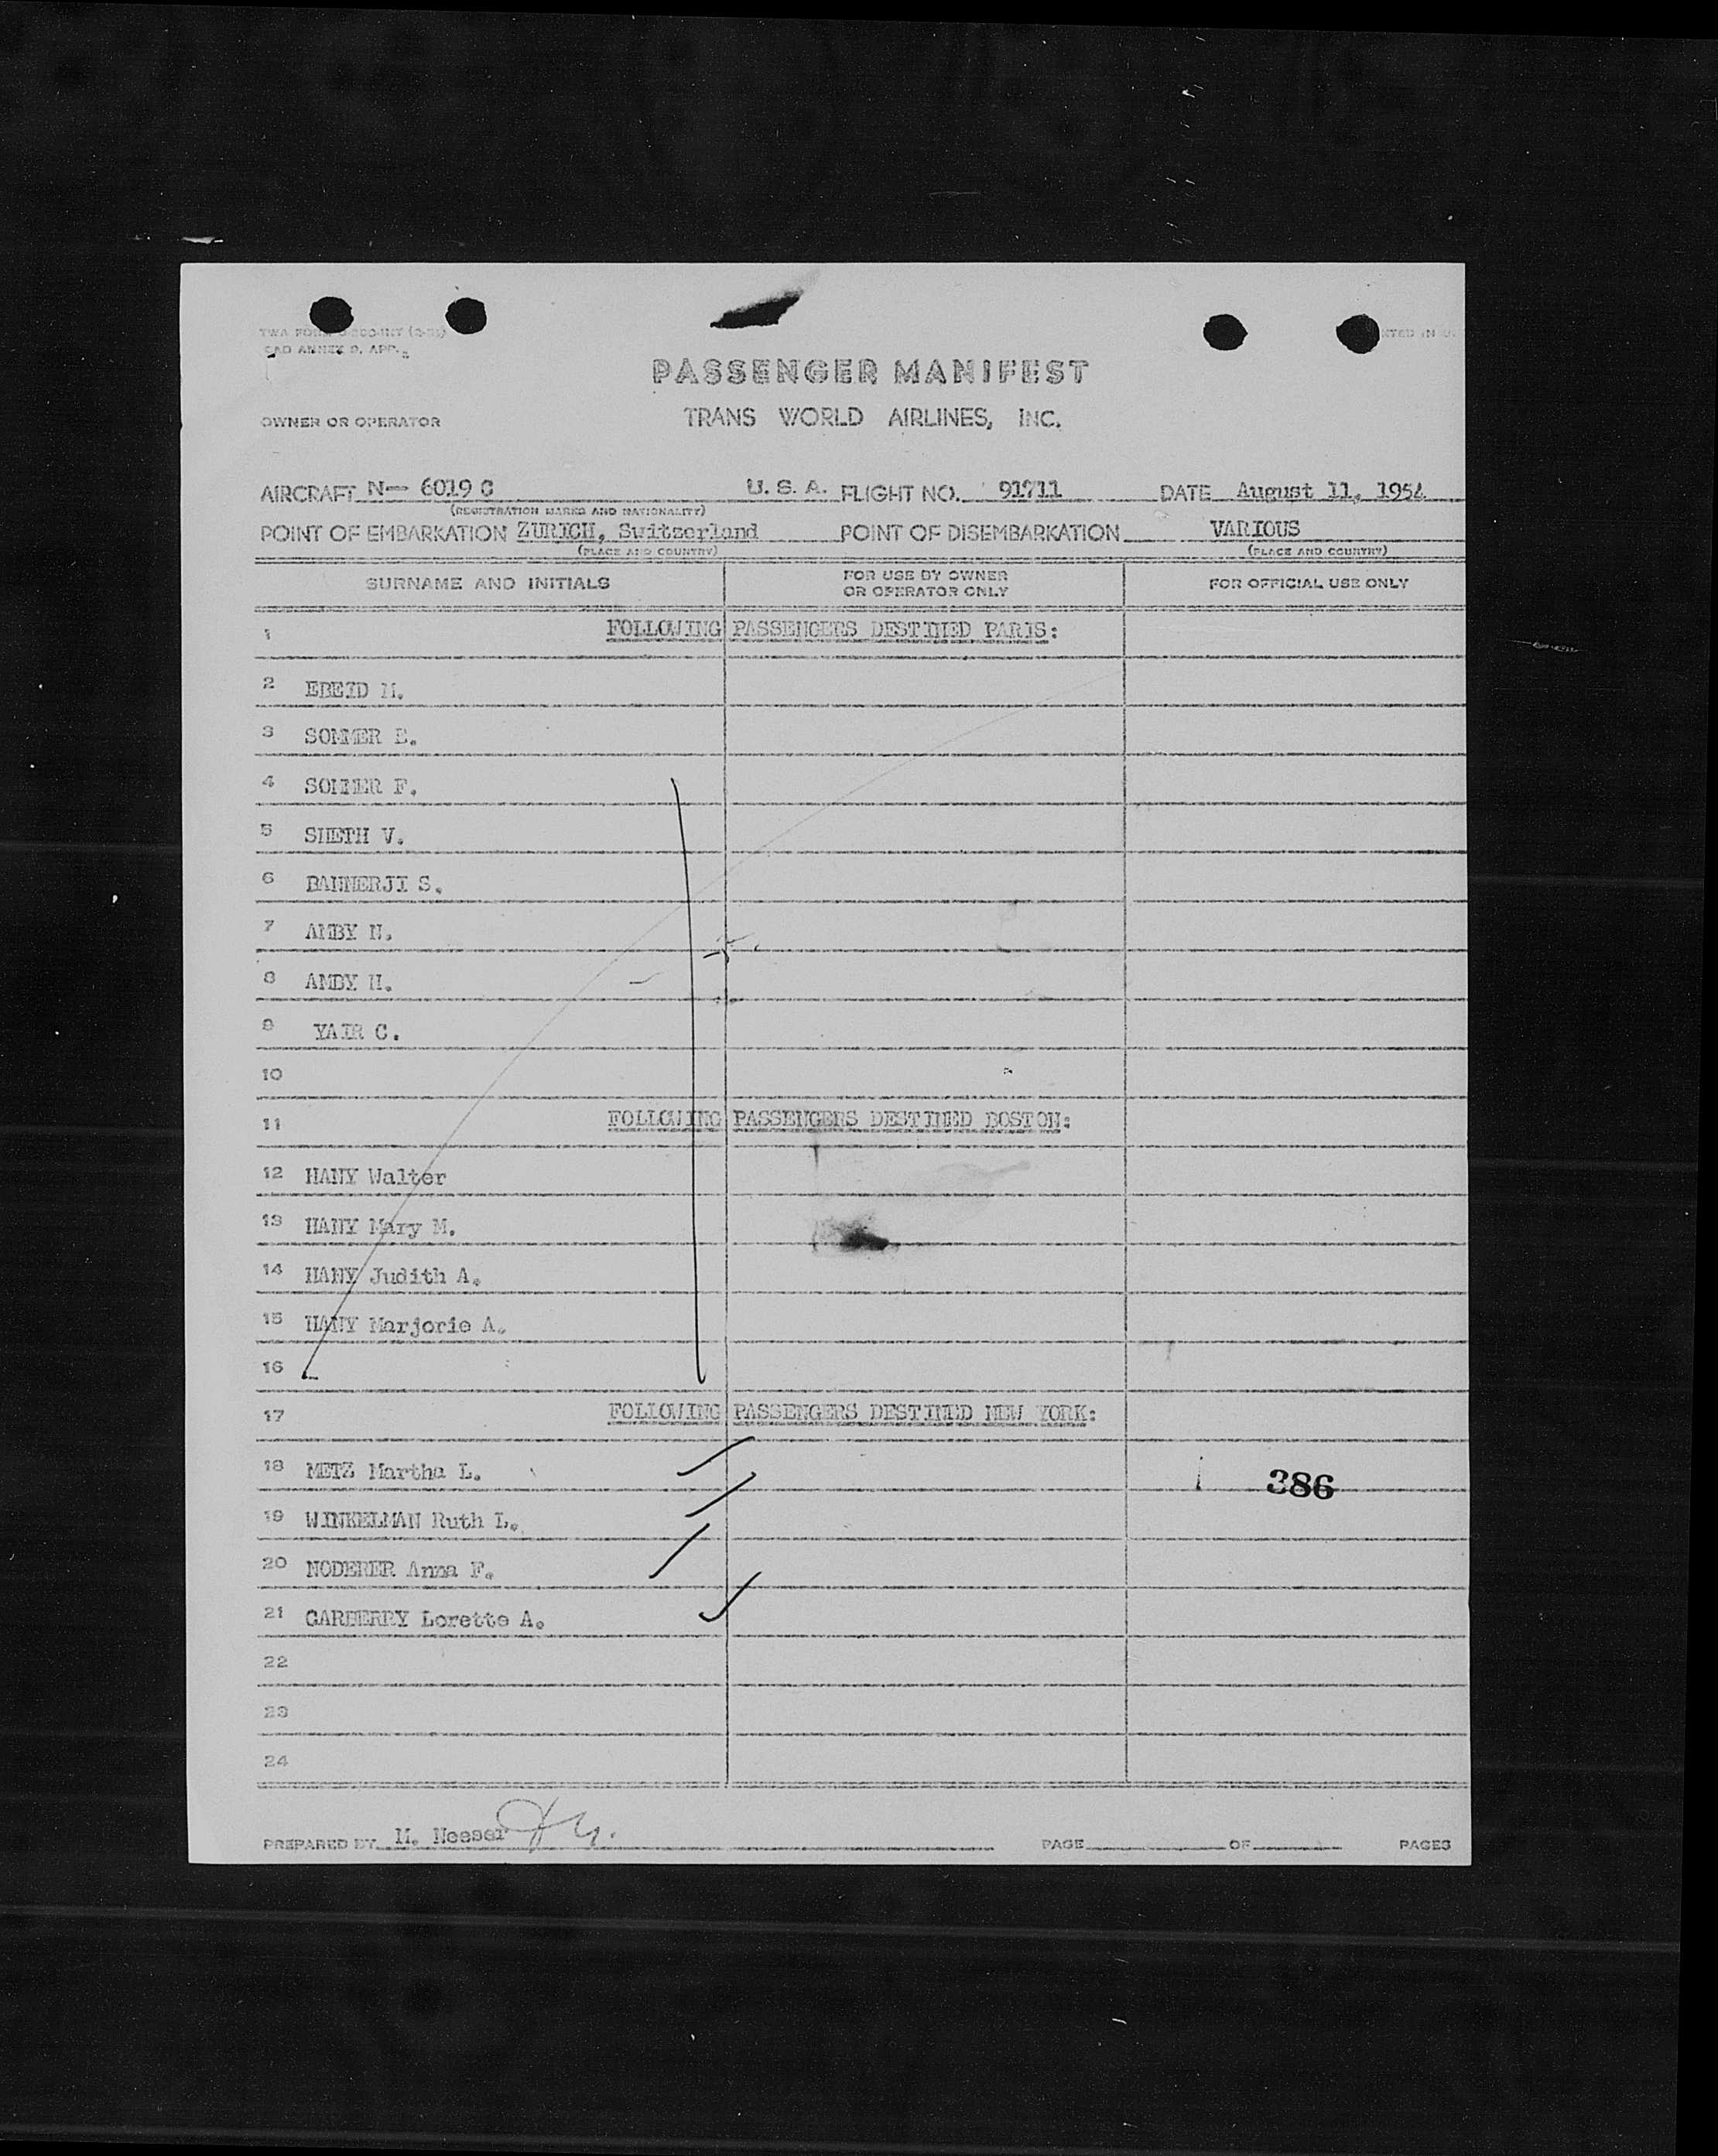 TWA FORM
PASSENGER MANIFEST
OWNER OR OPERATOR TRANS WORLD AIRLINES, INC.
AIRCRAFT N— 6019 C U. S. A. FLIGHT NO. 91711 DATE August 11, 1954
(REGISTRATION MARKS AND NATIONALITY)
POINT OF EMBARKATION ZURICH, Switzerland POINT OF DISEMBARKATION VARIOUS
(PLACE AND COUNTRY) (PLACE AND COUNTRY)
SURNAME AND INITIALS FOR USE BY OWNER OR OPERATOR ONLY FOR OFFICIAL USE ONLY
1 FOLLOWING PASSENGERS DESTINED PARIS:
2 EBEID M.
3 SOMMER E.
4 SOMMER F.
5 SHETH V.
6 BANNERJI S.
7 AMBY N.
8 AMBY H.
9 YAIR C.
10
11 FOLLOWING PASSENGERS DESTINED BOSTON:
12 HANY Walter
13 HANY Mary M.
14 HANY Judith A.
15 HANY Marjorie A.
16
17 FOLLOWING PASSENGERS DESTINED NEW YORK:
18 METZ Martha L. 386
19 WINKELMAN Ruth L.
20 NODERER Anna F.
21 CARBERRY Lorette A.
22
23
24
PREPARED BY M. Neeser PAGE OF PAGES